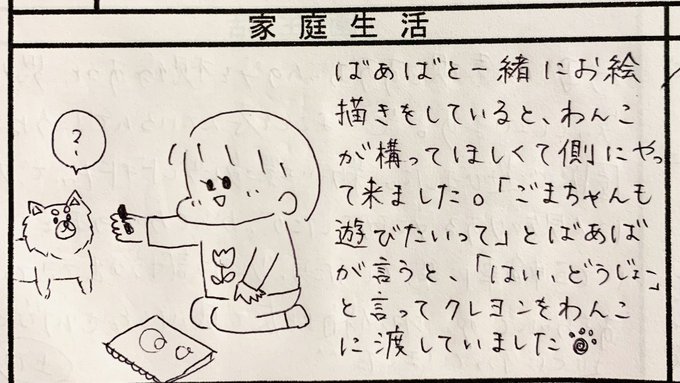 家庭生活
?
ばあばと一緒にお絵
描きをしていると、わんこ
が構ってほしくて側にやっ
て来ました。「ごまちゃんも
遊びたいって」とばあば
が言うと、「はい、どうじょ〜」
と言ってクレヨンをわんこ
に渡していました